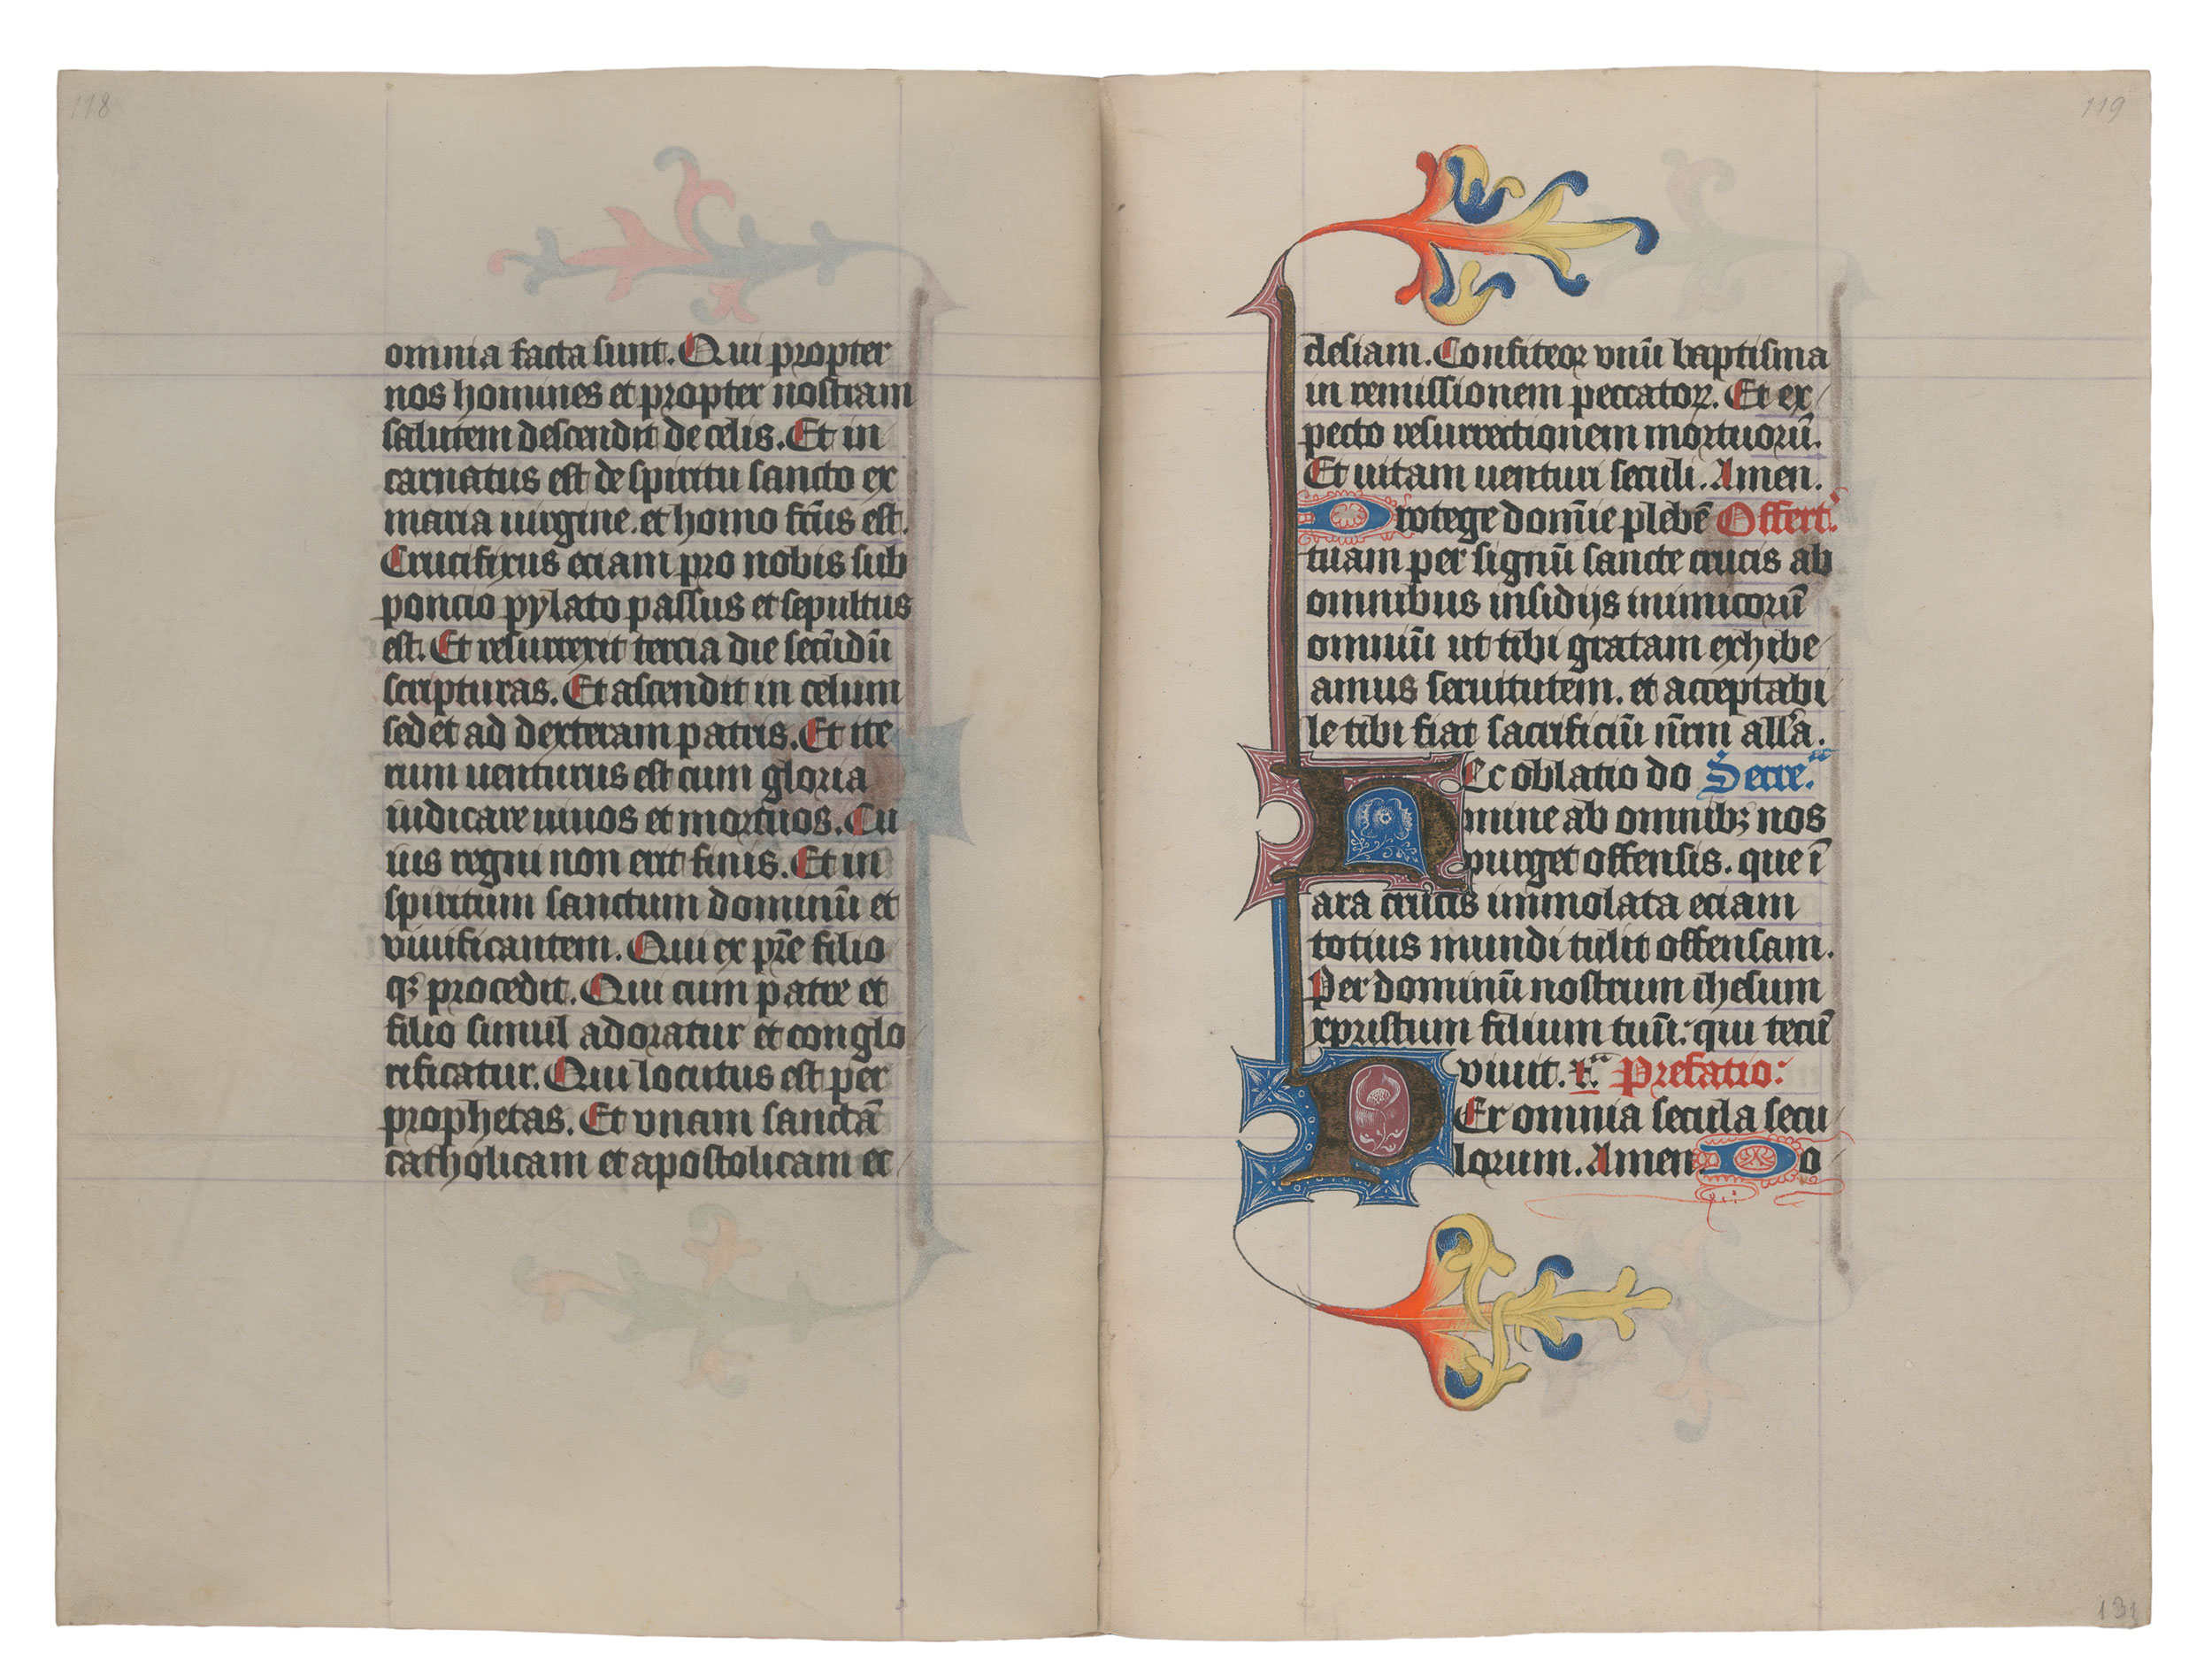 118
omnia facta sunt. Qui propter
nos homines et propter nostram
salutem descendit de celis. Et in
carnatus est de spiritu sancto ex
maria uirgine. et homo fc̄us est.
Crucifixus eciam pro nobis sub
poncio pylato passus et sepultus
est. Et resurrexit tercia die secūdū
scripturas. Et ascendit in celum
sedet ad dexteram patris. Et ite
rum uenturus est cum gloria
iudicare uiuos et mortuos. Cu
ius regni non erit finis. Et in
spiritum sanctum dominū et
viuificantem. Qui ex pr̄e filio
qꝫ procedit. Qui cum patre et
filio simul adoratur et conglo
rificatur. Qui locutus est per
prophetas. Et vnam sanctā
catholicam et apostolicam ec
119
clesiam. Confiteor vnū baptisma
in remissionem peccatoꝝ. Et ex
pecto resurrectionem mortuorū.
Et uitam uenturi seculi. Amen.
Protege domīe plebē Offert.
tuam per signū sancte crucis ab
omnibus insidijs inimicorū
omniū ut tibi gratam exhibe
amus seruitutem. et acceptabi
le tibi fiat sacrificiū nr̄m all'a.
HEc oblatio do Secre.
mine ab omnibꝫ nos
purget offensis. que ī
ara crucis immolata eciam
totius mundi tulit offensam.
Per dominū nostrum ihesum
xpristum filium tuū: qui tecū
viuit. Prefatio:
PEr omnia secula secu
lorum. Amen Do
131